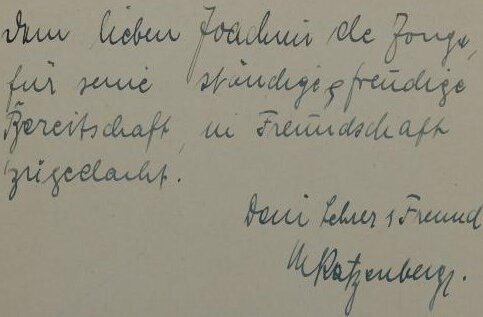 Dem lieben Joachim de Jonge,
für seine ständige, freudige
Bereitschaft, in Freundschaft
zugedacht.
Dein Lehrer & Freund
MKatzenberg.